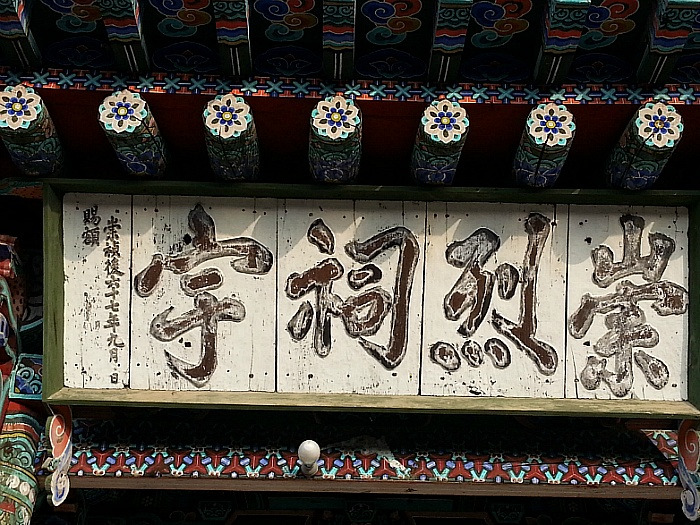 崇烈祠宇
崇禎後六十七年九月 日
賜額